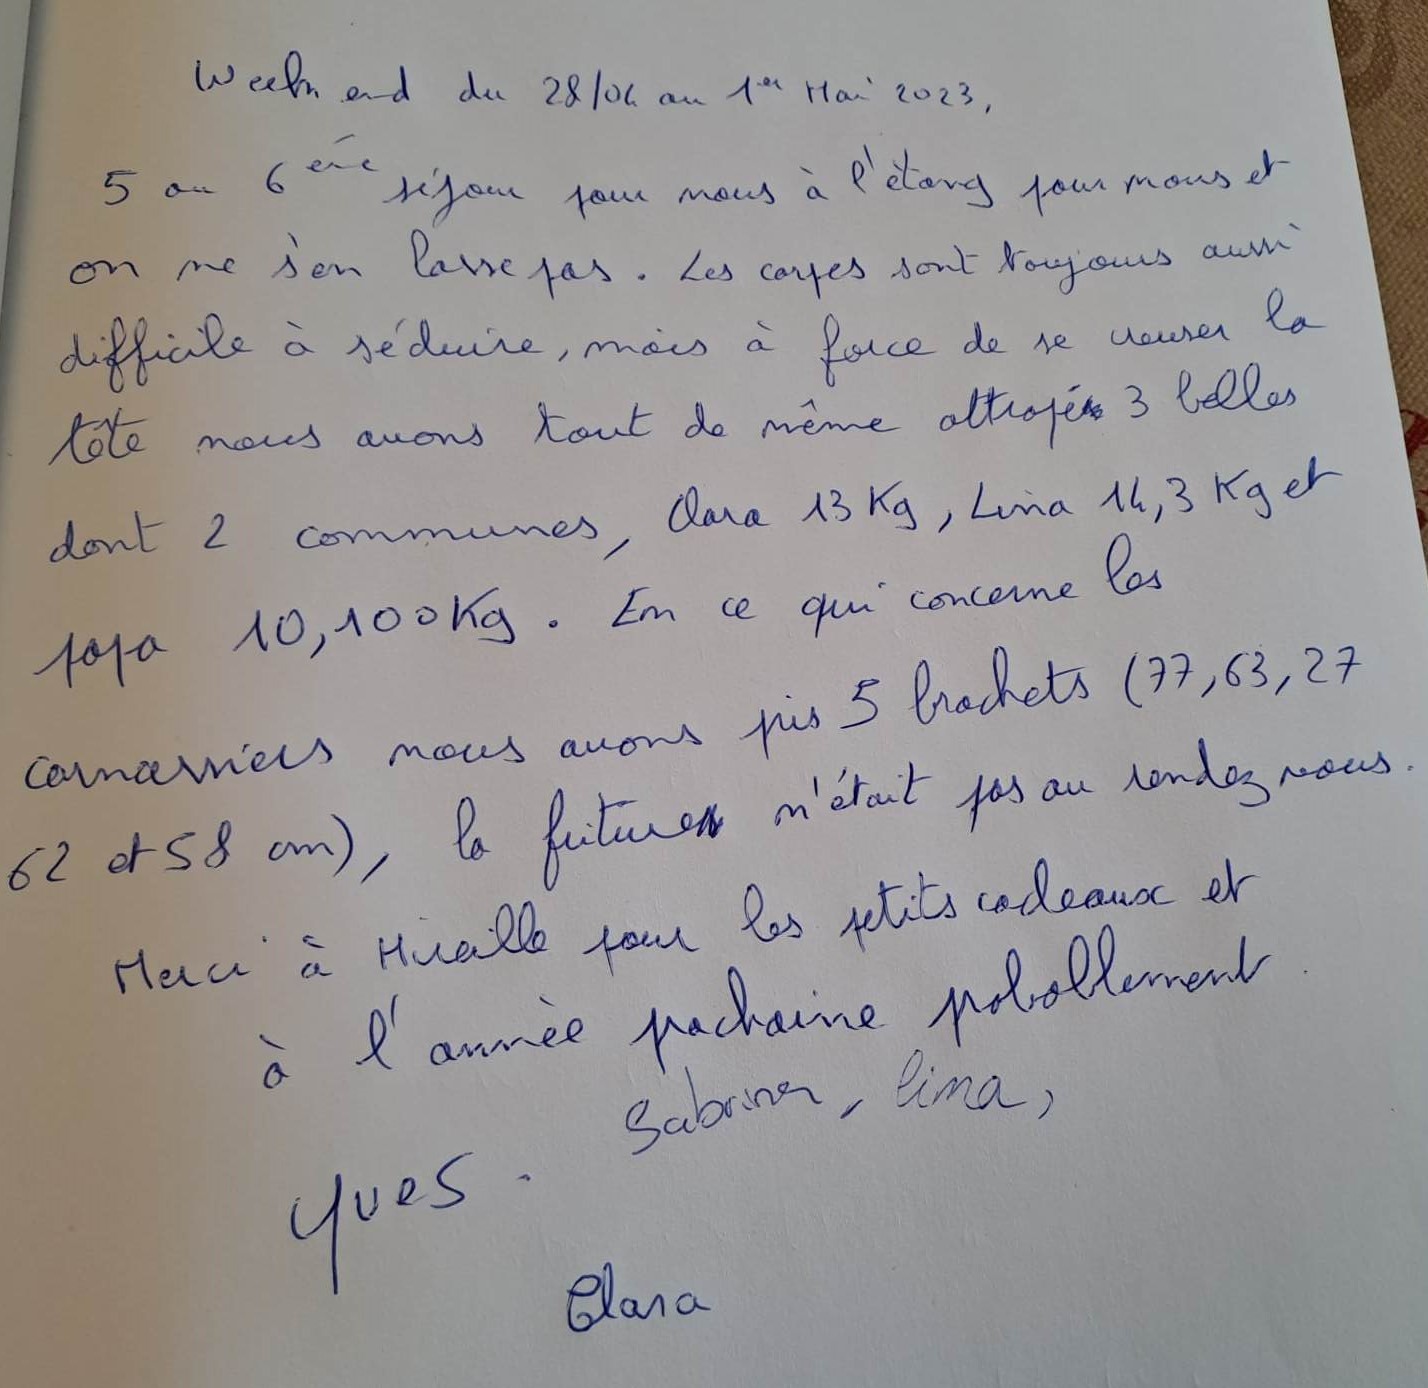 Week end du 28/04 au 1er Mai 2023,
5 ou 6ème séjour pour nous à l'étang pour nous et
on ne s'en lasse pas. Les carpes sont toujours aussi
difficile à séduire, mais à force de se creuser la
tête nous avons tout de même attrapés 3 belles
dont 2 communes, Clara 13 Kg, Lina 14,3 Kg et
papa 10,100Kg. En ce qui concerne les
carnassiers nous avons pris 5 brochets (77,63,27
62 et 58 cm), la friture n'était pas au rendez vous.
Merci à Mireille pour les petits cadeaux et
à l'année prochaine probablement.
Sabrina, lina,
Yves.
Clara